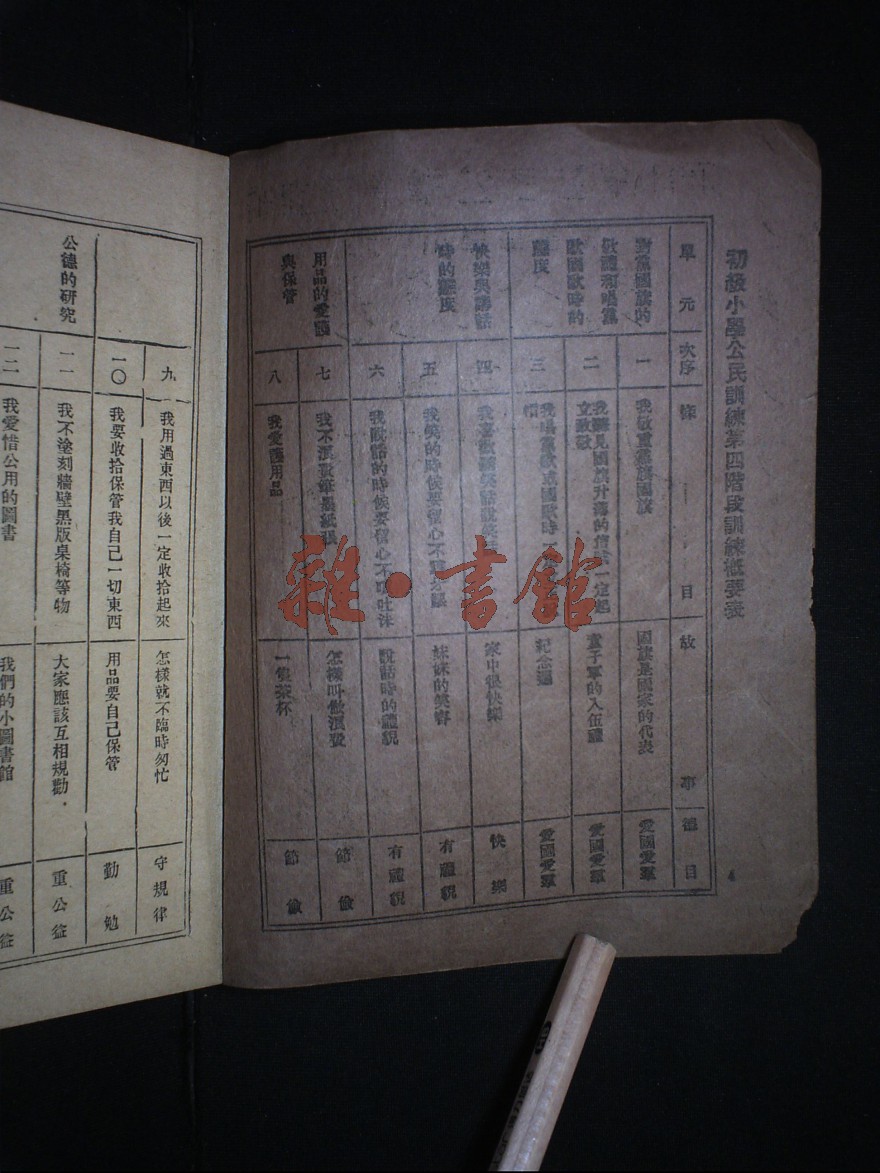 初級小學公民訓練第四階段訓練概要表
單元
次序
條目
故事
德目
對黨國旗的
敬禮和唱黨
歌國歌時的
態度
一
我敬重黨旗國旗
國旗是國家的代表
愛國愛羣
二
我聽見國旗升降的信號一定起
立致敬
童子軍的入伍禮
愛國愛羣
三
我唱黨歌或國歌時一定
帽
紀念週
愛國愛羣
快樂與講話
時的態度
四
我喜歡
家中很快樂
快樂
五
我笑的時候要留心不
妹妹的笑容
有禮貌
六
我說話的時候要留心不吐沫
說話時的禮貌
有禮貌
用品的愛護
與保管
七
我不浪費筆墨紙張
怎樣叫做浪費
節儉
八
我愛護用品
一隻茶杯
節儉
九
我用過東西以後一定收拾起來
怎樣就不臨時匆忙
守規律
一〇
我要收拾保管我自己一切東西
用品要自己保管
勤勉
公德的研究
一一
我不塗刻牆壁黑版桌椅等物
大家應該互相規勸．
重公益
一二
我愛惜公用的圖書
我們的小圖書館
重公益
4
雜·書館